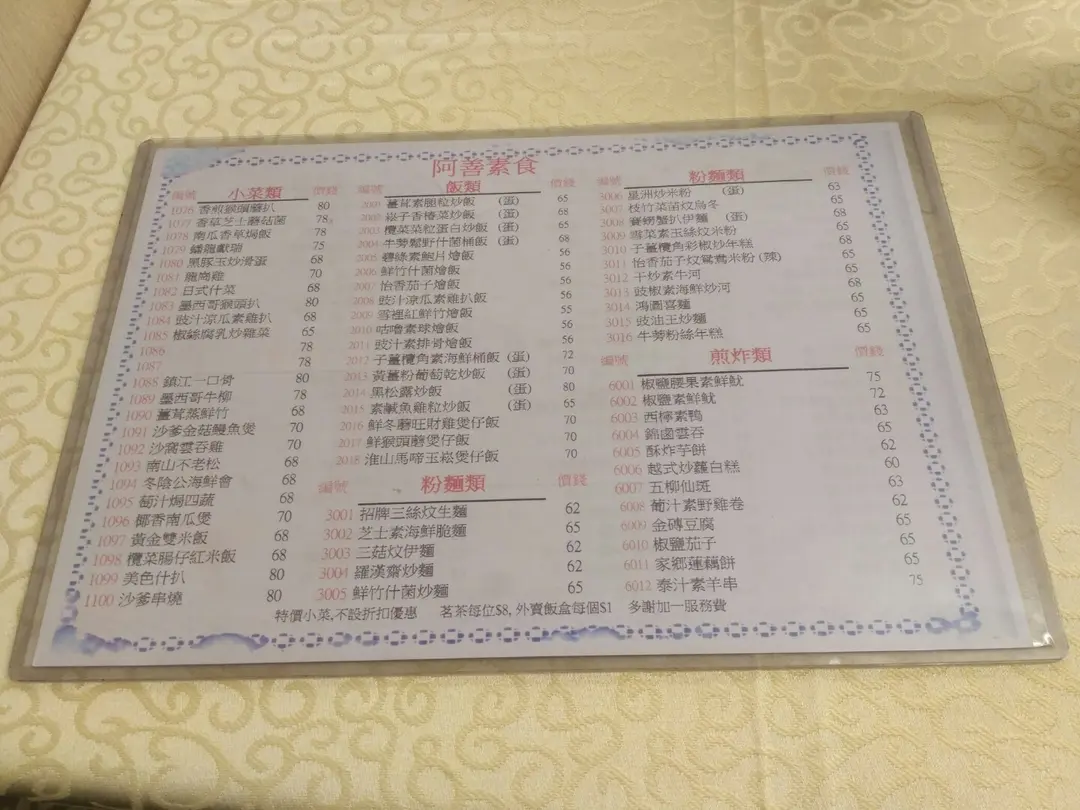 阿善素食
編號 小菜類 價錢
1076 香煎猴頭蘑扒 80
1077 香草芝士蘑菇菌 78
1078 南瓜香草焗飯 78
1079 鱔龍獻瑞 75
1080 黑豚玉炒滑蛋 68
1081 龍崗雞 70
1082 日式什菜 68
1083 墨西哥猴頭扒 80
1084 豉汁涼瓜素雞扒 68
1085 椒絲腐乳炒雞菜 65
1086 78
1087 78
1088 鎮江一口骨 80
1089 墨西哥牛柳 78
1090 薑茸蒸鮮竹 68
1091 沙爹金菇鰻魚煲 70
1092 沙窩雲吞雞 70
1093 南山不老松 68
1094 冬陰公海鮮會 68
1095 萄汁焗四蔬 68
1096 椰香南瓜煲 70
1097 黃金雙米飯 68
1098 欖菜腸仔紅米飯 68
1099 美色什扒 80
1100 沙爹串燒 80
編號 飯類 價錢
2001 薑茸素腿粒炒飯 (蛋) 65
2002 崧子香椿菜炒飯 (蛋) 68
2003 欖菜菜粒蛋白炒飯 (蛋) 65
2004 牛蒡鬆野什菌桶飯 (蛋) 68
2005 碧綠素鮑片燴飯 56
2006 鮮竹什菌燴飯 56
2007 怡香茄子燴飯 56
2008 豉汁涼瓜素雞扒飯 56
2009 雪裡紅鮮竹燴飯 55
2010 咕嚕素球燴飯 56
2011 豉汁素排骨燴飯 56
2012 子薑欖角素海鮮桶飯 (蛋) 72
2013 黃薑粉葡萄乾炒飯 (蛋) 70
2014 黑松露炒飯 (蛋) 80
2015 素鹹魚雞粒炒飯 (蛋) 65
2016 鮮冬蘑旺財雞煲仔飯 70
2017 鮮猴頭蘑煲仔飯 70
2018 淮山馬啼玉崧煲仔飯 70
編號 粉麵類 價錢
3001 招牌三絲炆生麵 62
3002 芝士素海鮮脆麵 65
3003 三菇炆伊麵 62
3004 羅漢齋炒麵 62
3005 鮮竹什菌炒麵 65
編號 粉麵類 價錢
3006 星洲炒米粉 (蛋) 63
3007 枝竹菜苗炆烏冬 65
3008 賽螃蟹扒伊麵 (蛋) 68
3009 雪菜素玉絲炆米粉 65
3010 子薑欖角彩椒炒年糕 68
3011 怡香茄子炆鴛鴦米粉 (辣) 65
3012 干炒素牛河 65
3013 豉椒素海鮮炒河 68
3014 鴻圖喜麵 65
3015 豉油王炒麵 65
3016 牛蒡粉絲年糕 65
編號 煎炸類 價錢
6001 椒鹽腰果素鮮魷 75
6002 椒鹽素鮮魷 72
6003 西檸素鴨 63
6004 錦鹵雲吞 65
6005 酥炸芋餅 62
6006 越式炒蘿白糕 60
6007 五柳仙斑 63
6008 葡汁素野雞卷 62
6009 金磚豆腐 65
6010 椒鹽茄子 65
6011 家鄉蓮藕餅 65
6012 泰汁素羊串 75
特價小菜,不設折扣優惠 茗茶每位$8, 外賣飯盒每個$1 多謝加一服務費